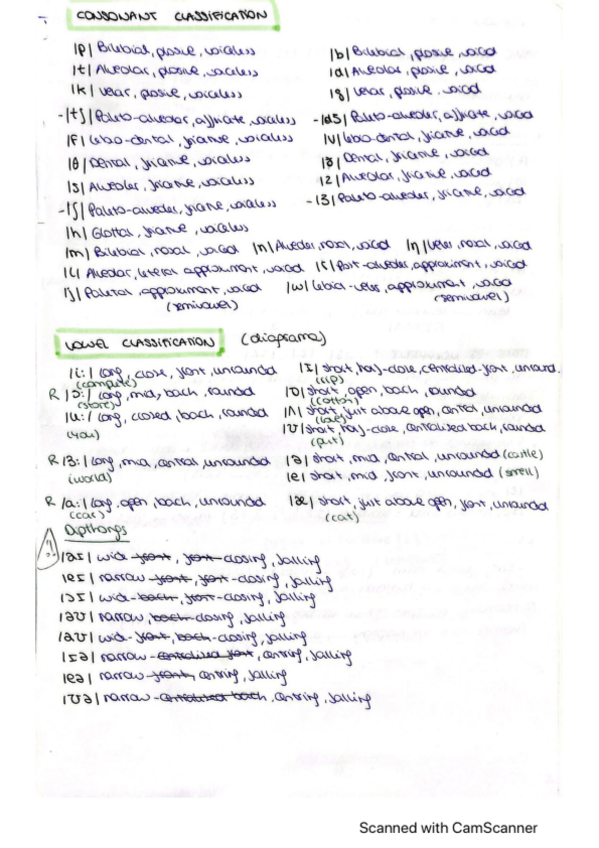 CONSONANT CLASSIFICATION
|p| Bilabial, plosive, voiceless |b| Bilabial, plosive, voiced
|t| Alveolar, plosive, voiceless |d| Alveolar, plosive, voiced
|k| velar, plosive, voiceless |g| velar, plosive, voiced
-|tʃ| Palato-alveolar, affricate, voiceless -|dʒ| Palato-alveolar, affricate, voiced
|f| Labio-dental, fricative, voiceless |v| labio-dental, fricative, voiced
|θ| Dental, fricative, voiceless |ð| Dental, fricative, voiced
|s| Alveolar, fricative, voiceless |z| Alveolar, fricative, voiced
-|ʃ| Palato-alveolar, fricative, voiceless -|ʒ| Palato-alveolar, fricative, voiced
|h| Glottal, fricative, voiceless
|m| Bilabial, nasal, voiced |n| Alveolar, nasal, voiced |ŋ| Velar, nasal, voiced
|l| Alveolar, lateral approximant, voiced |r| Post-alveolar, approximant, voiced
|j| Palatal, approximant, voiced |w| Labial-velar, approximant, voiced
(semivowel) (semivowel)
VOWEL CLASSIFICATION (diagrama)
|i:| long, close, front, unrounded |ɪ| short, half-close, centralised-front, unround.
(compute) (rip)
R |ɔ:| long, mid, back, rounded |ɒ| short, open, back, rounded
(store) (cotton)
|u:| long, closed, back, rounded |ʌ| short, just above open, central, unrounded
(you) (love)
|ʊ| short, half-close, centralised back, rounded
(put)
R |ɜ:| long, mid, central, unrounded |ə| short, mid, central, unrounded (cattle)
(world) |e| short, mid, front, unrounded (smell)
R |a:| long, open, back, unrounded |æ| short, just above open, front, unrounded
(car) (cat)
Dipthongs
|aɪ| wide front, front-closing, falling
|eɪ| narrow-front, front-closing, falling
|ɔɪ| wide-back, front-closing, falling
|əʊ| narrow, back-closing, falling
|aʊ| wide-front, back-closing, falling
|ɪə| narrow-centralised front, centring, falling
|eə| narrow-front, centring, falling
|ʊə| narrow-centralised back, centring, falling
Scanned with CamScanner